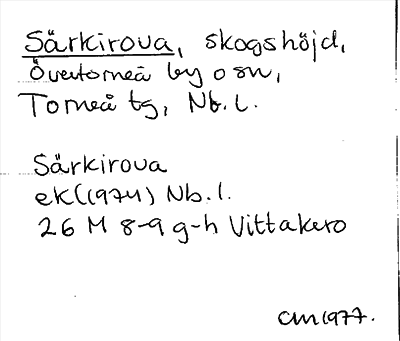 Särkirova, skogshöjd,
Övertorneå by o sn,
Torneå tg, Nb. l.
Särkirova
ek (1974) Nb. l.
26 M 8-9 g-h Vittakero
CM 1977.